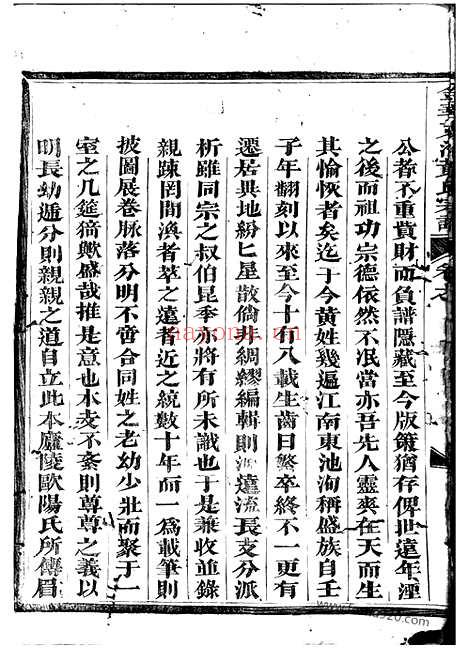 公者不重貲財而負譜隱藏至今版策猶存俾世遠年湮
之後而祖功宗德依然不泯當亦吾先人靈爽在天而生
其愉恢者矣迄于今黃姓幾遍江南東池洵稱盛族自壬
子年翻刻以來至今十有八載生齒日繁卒終不一更有
遷居異地紛匕星散倘弗綢繆編輯則源遠流長支分派
析雖同宗之叔伯昆季亦將有所未識也于是兼收並錄
親疎罔間渙者萃之遠者近之統數十年而一為載筆則
披圖展卷脉落分明不啻合同姓之老幼少壯而聚于一
室之几筵猗歟盛哉推是意也本支不紊則尊尊之義以
明長幼遞分則親親之道自立此本廬陵歐陽氏所傳眉